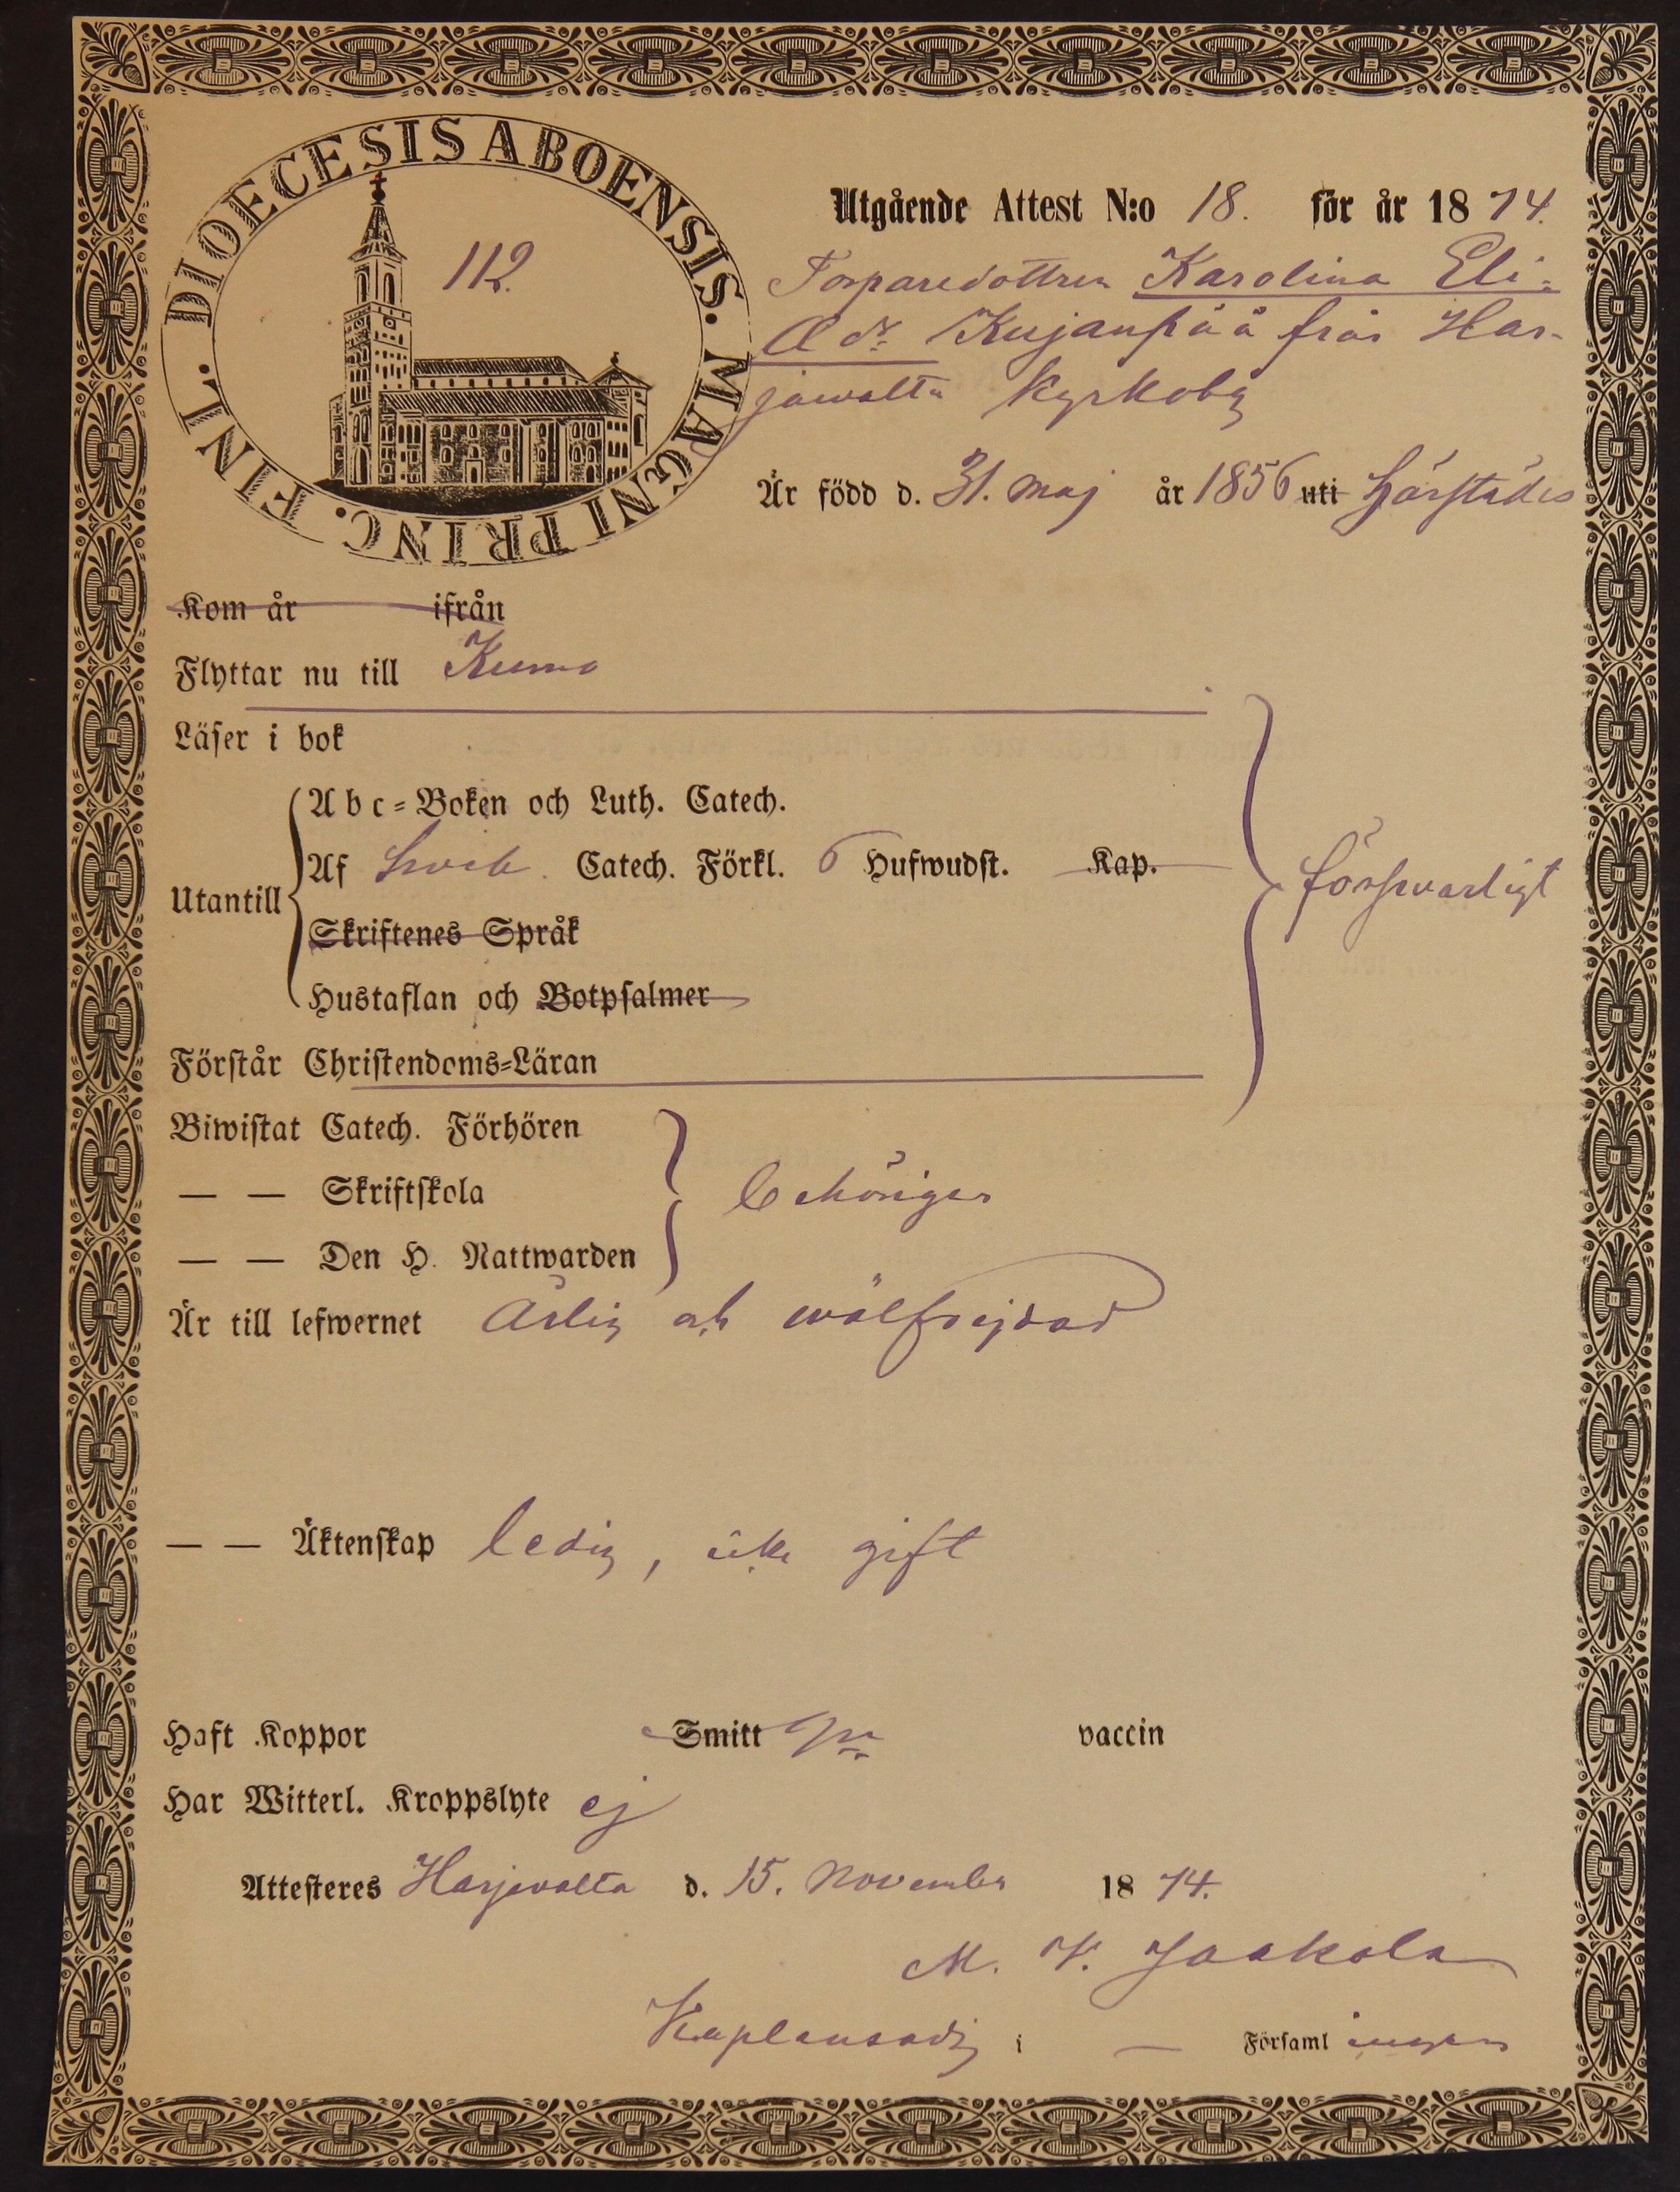 DIOECESIS ABOENSIS. MAGNI PRINC. FINL.
112.
Utgående Attest N:o 18. för år 1874.
Torparedottren Karolina Eli-
Kujanpää från Har-
jawalta Kyrkoby
Är född d. 31. maj år 1856 uti härstädes
Kom år ifrån
Flyttar nu till Kumo
Läser i bok
Abc=Boken och Luth. Catech.
Utantill
Af Sveb. Catech. Förkl. 6 Hufwudst. Kap.
försvarligt
Skriftenes Språk
Hustaflan och Botpsalmer
Förstår Christendoms=Läran
Biwistat Catech. Förhören
— — Skriftskola behörigen
— — Den H. Nattwarden
Är till lefwernet ärlig och wälfrejdad
— — Äktenskap ledig, icke gift
Haft Koppor Smitt vaccin
Har Witterl. Kroppslyte ej
Attesteres Harjavalta d. 15. November 1874.
M. V. Jaakola
i — Församl ingen